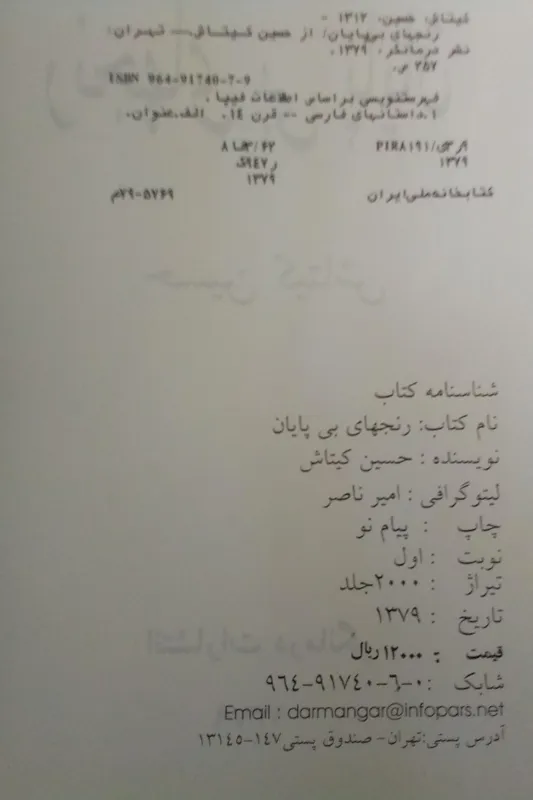 کیتاش، حسین، ۱۳۱۲ -
رنجهای بی‌پایان/ از حسین کیتاش.— تهران:
نشر درمانگر، ۱۳۷۹.
۲۵۷ ص.
ISBN 964-91740-7-9
فهرستنویسی براساس اطلاعات فیپا.
۱.داستانهای فارسی -- قرن ۱۴. الف.عنوان.
PIR۸۱۹۱/ی۳ر۹ ۸فا۳/۶۲
۱۳۷۹ ر۹۴۷ک
۱۳۷۹
کتابخانه‌ملی‌ایران ۵۷۶۹-۷۹م
شناسنامه کتاب
نام کتاب: رنجهای بی پایان
نویسنده : حسین کیتاش
لیتوگرافی : امیر ناصر
چاپ : پیام نو
نوبت : اول
تیراژ : ۲۰۰۰جلد
تاریخ : ۱۳۷۹
قیمت : ۱۲۰۰۰ ریال
شابک : ۰-۶-۹۱۷۴۰-۹۶۴
Email : darmangar@infopars.net
آدرس پستی:تهران- صندوق پستی۱۴۷-۱۳۱۴۵